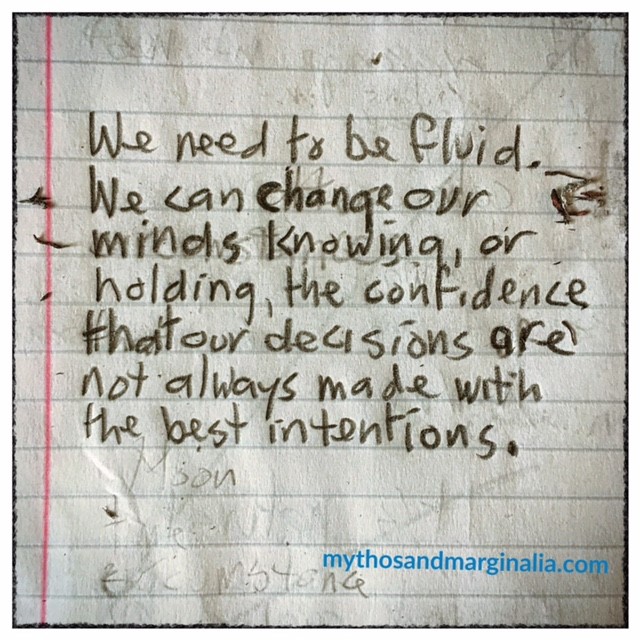 We need to be fluid.
We can change our
minds knowing, or
holding, the confidence
that our decisions are
not always made with
the best intentions.
Moon
mythosandmarginalia.com